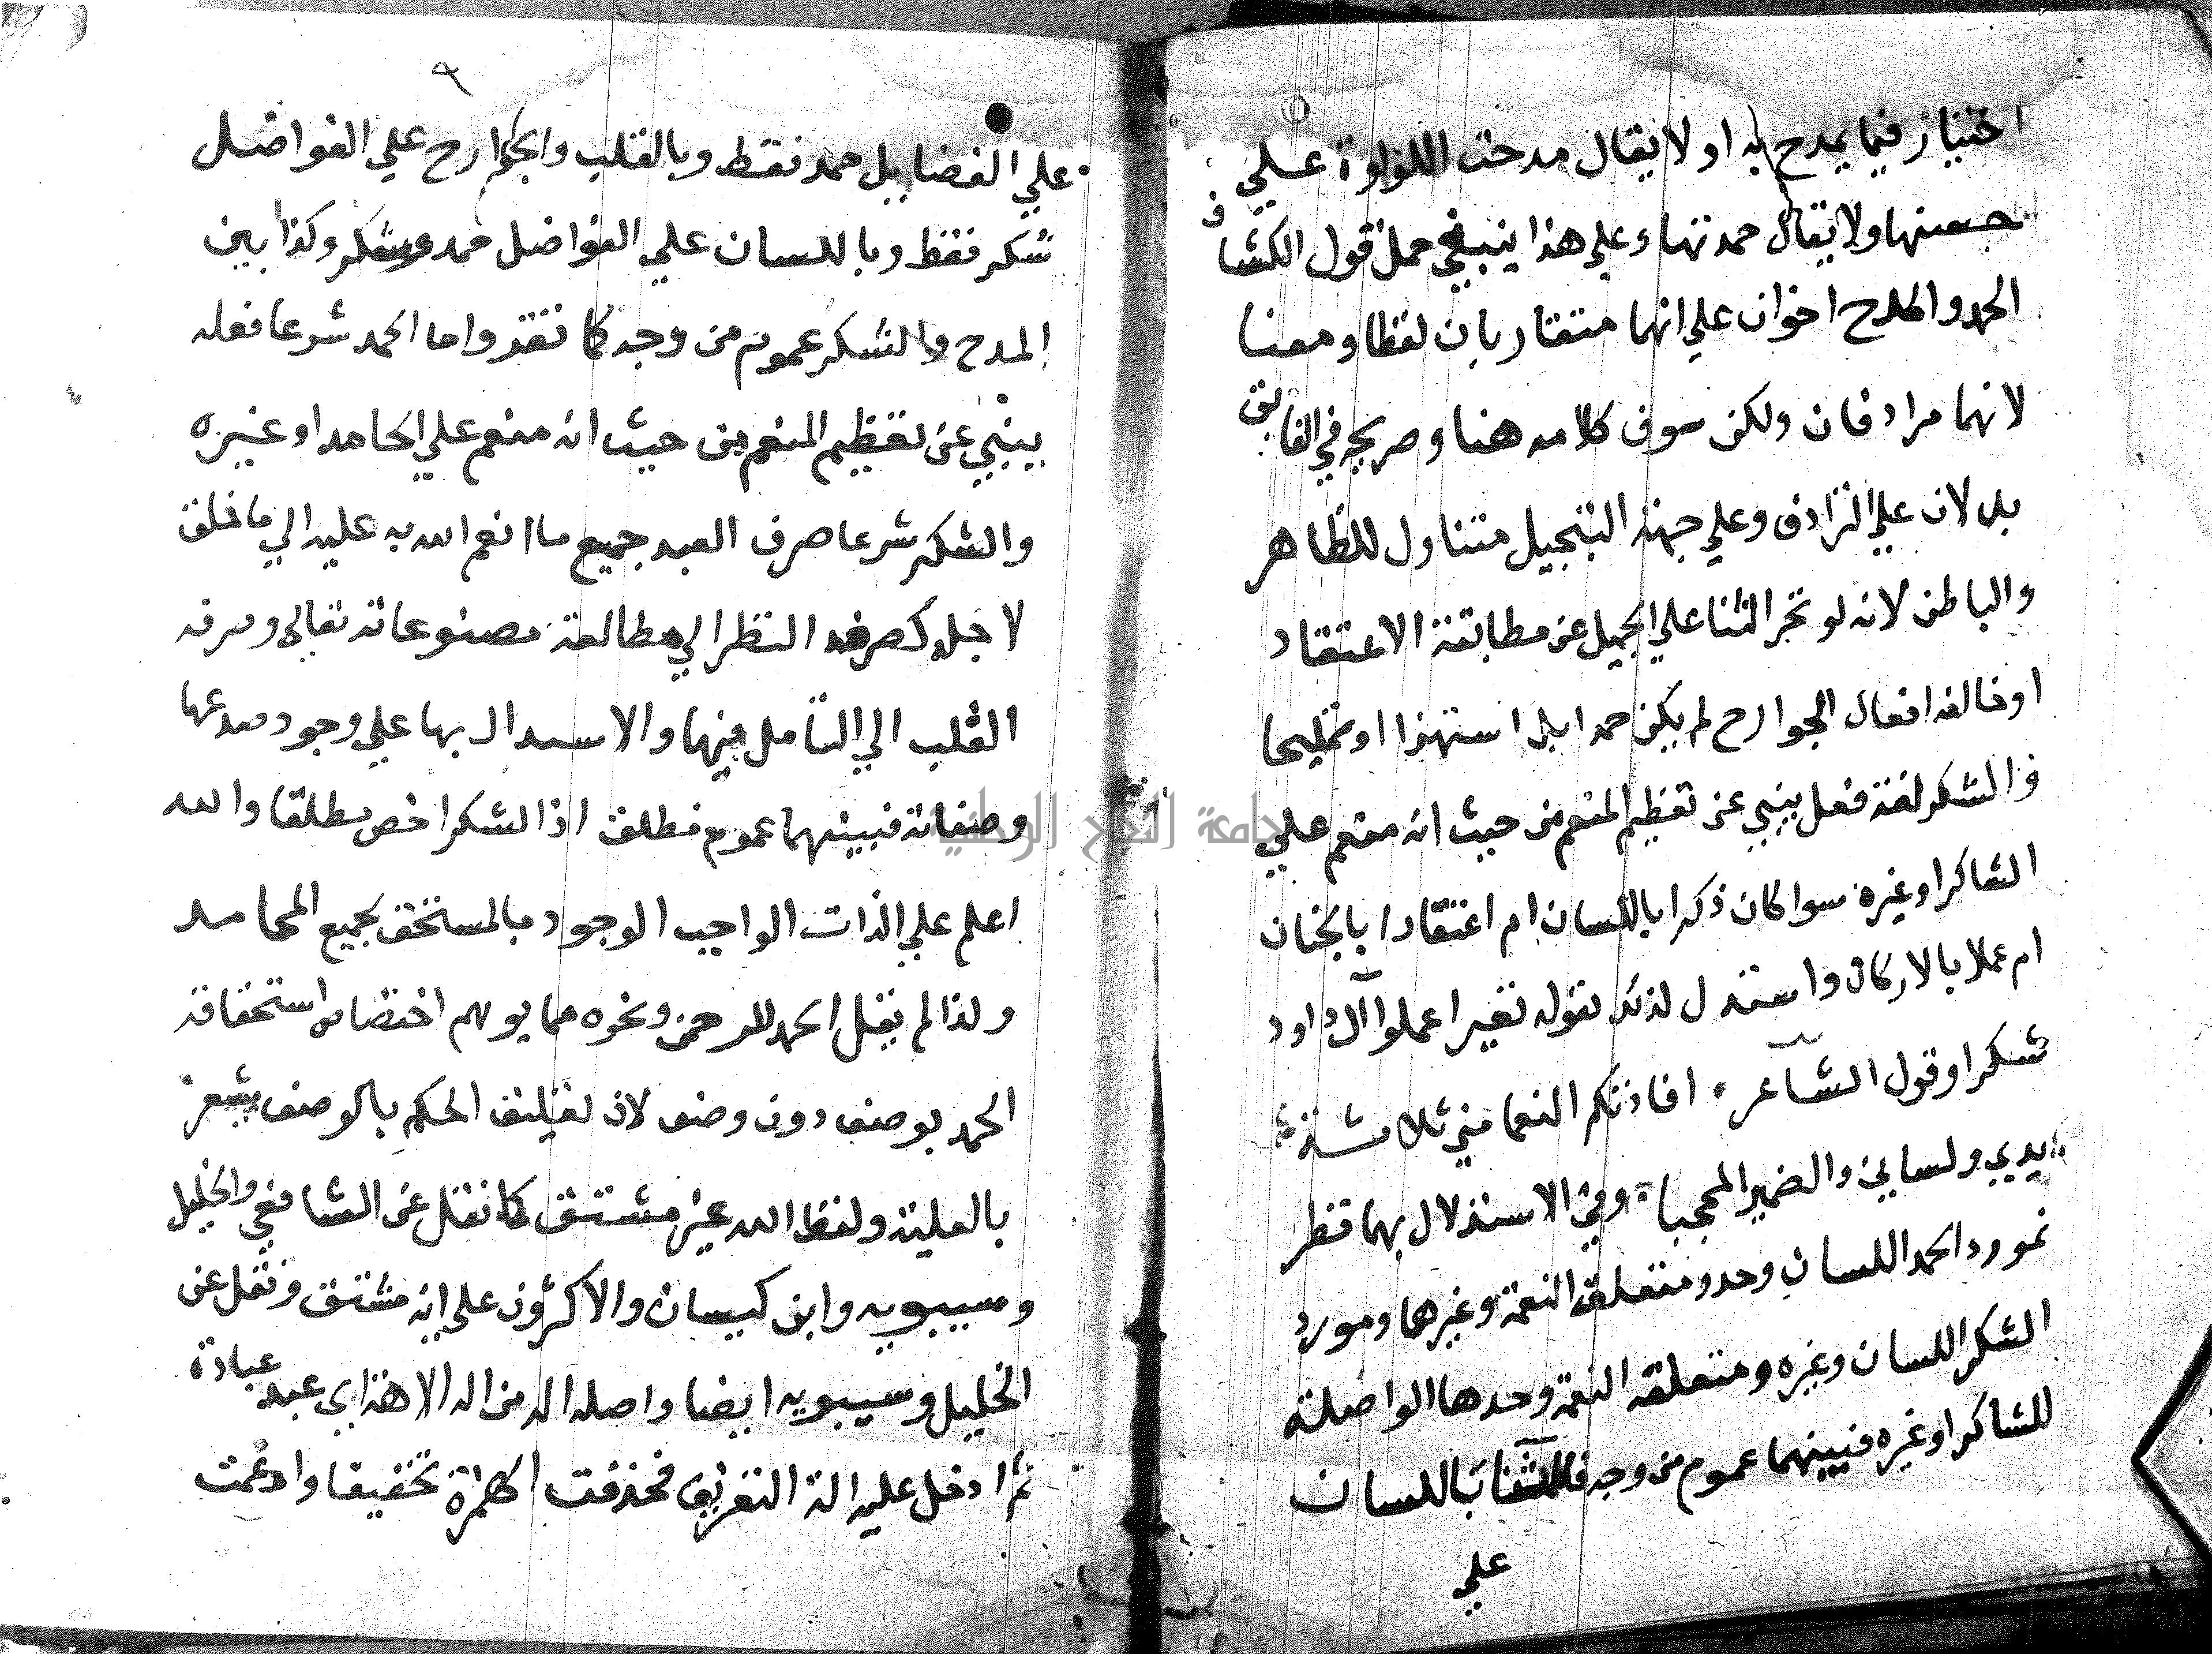 اختيار فيما يمدح به او لا يقال مدحت اللؤلوة علي
حسنها ولا يقال حمدتها وعلي هذا ينبغي حمل قول الكشاف
الحمد والمدح اخوان علي انهما متقاربان لفظا ومعنا
لا نهما مرادفان ولكن سوق كلامه هنا وصريحه في الفايق
بل لان علي الترادف وعلي جهة التبجيل متناول للظاهر
والباطن لانه لو تجر الثنا علي الجميل عن مطابقة الاعتقاد
او خالفه افعال الجوارح لم يكن حمدا بل استهزا او تمليحا
والشكر لغة فعل ينبي عن تعظيم المنعم من حيث انه منعم علي
الشاكر او غيره سوا كان ذكرا باللسان ام اعتقادا بالجنان
ام عملا بالاركان واستدل لذلك بقوله اعملوا ال داود
شكرا وقول الشاعر افادتكم النعما مني ثلاثة
يدي ولساني والضمير المحجبا وفي الاستدلال بهما قطر
فمورد الحمد اللسان وحده ومتعلقه النعمة وغيرها ومورد
الشكر اللسان وغيره ومتعلقه النعمة وحدها الواصلة
للشاكر او غيره فبينهما عموم من وجه فالثنا باللسان
علي
٩
علي الفضايل حمد فقط وبالقلب والجوارح علي الفواضل
شكر فقط وباللسان علي الفواضل حمد وشكر وكذا بين
المدح والشكر عموم من وجه كا تقدم واما الحمد شرعا فعله
ينبي عن تعظيم المنعم من حيث انه منعم علي الحامد او غيره
والشكر شرعا صرف العبد جميع ما انعم الله به عليه الي ما خلق
لاجله كصرفه النظر الي مطالعة مصنوعاته تعالي وصرفه
القلب الي التامل فيها والاستدال بها علي وجود مبدعها
وصفاته فبينهما عموم مطلق اذ الشكر اخص مطلقا والله
اعلم علي الذات الواجب الوجود بالمستحق بجميع المحامد
ولذا لم يقل الحمد للرحمن ونحوه مما يوهم اختصاص استحقاقه
الحمد بوصف دون وصف لان تعليق الحكم بالوصف يشعر
بالعلية ولفظ الله غير مشتق كا نقل عن الشافعي والخليل
وسيبويه وابن كيسان والاكثرون علي انه مشتق ونقل عن
الخليل وسيبويه ايضا واصله اله من اله الاهة اي عبد عبادة
ثم ادخل عليه الة التعريف فحذفت الهمزة تخفيفا وادغمت